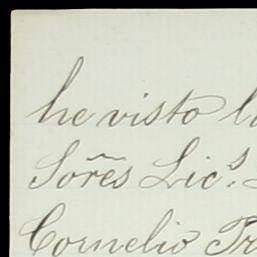 he visto
Sores Lics.
Cornelio